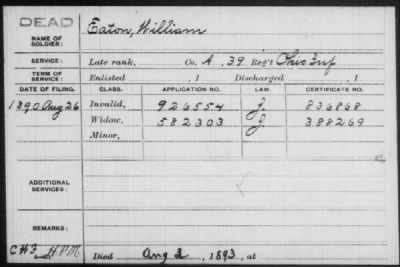 DEAD
NAME OF SOLDIER: Eaton, William
SERVICE: Late rank, Co. A, 39 Reg't Ohio Inf
TERM OF SERVICE: Enlisted , 1 Discharged , 1
DATE OF FILING. CLASS. APPLICATION NO. LAW. CERTIFICATE NO.
1890 Aug 26 Invalid, 926554 J. 836868
Widow, 582303 J 388269
Minor,
ADDITIONAL SERVICES:
REMARKS:
C#3 H.P.M. Died Aug 2, 1893, at